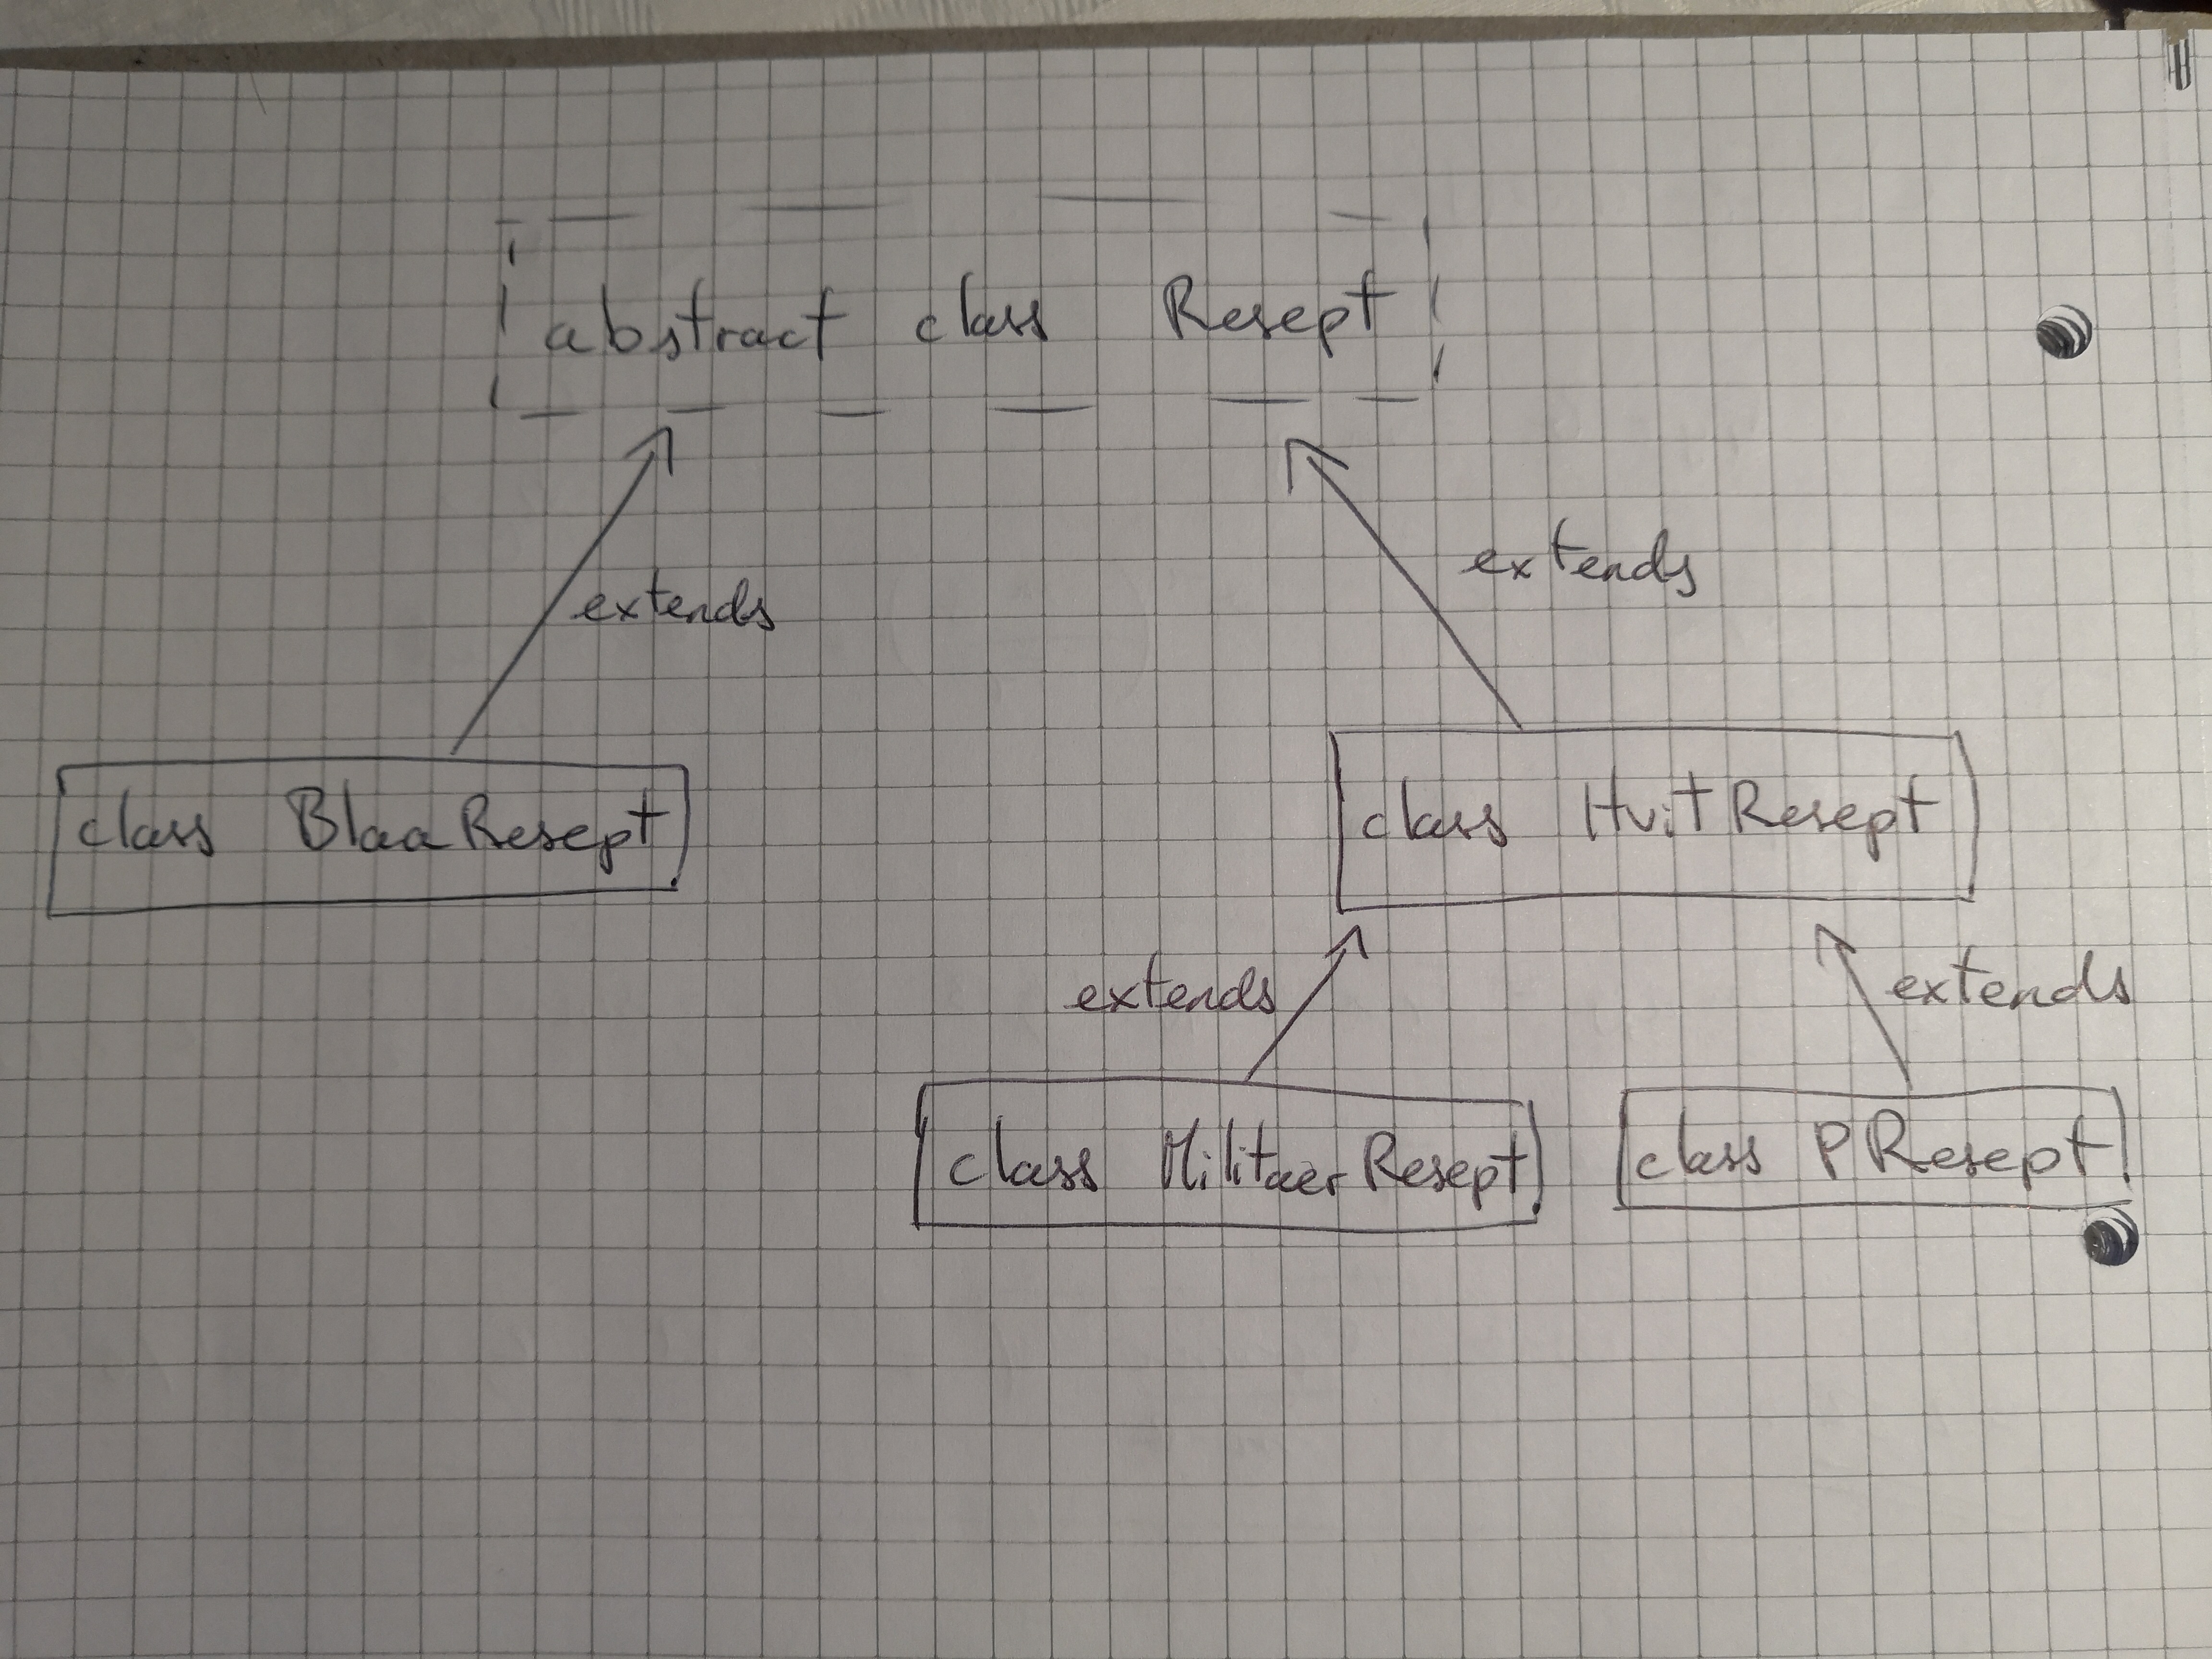 abstract class Resept
extends
extends
class BlaaResept
class HvitResept
extends
extends
class MilitaerResept
class PResept